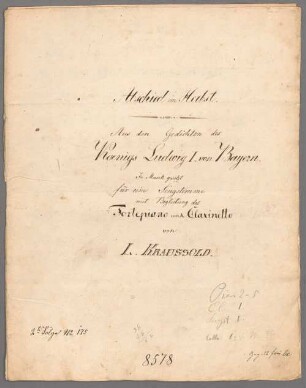 Abschied im Herbst.
Aus den Gedichten des
Koenigs Ludwig I. von Bayern.
In Musik gesetzt
für eine Singstimme
mit Begleitung des
Fortepiano und Clarinetto
von
L. KRAUSSOLD.
8578